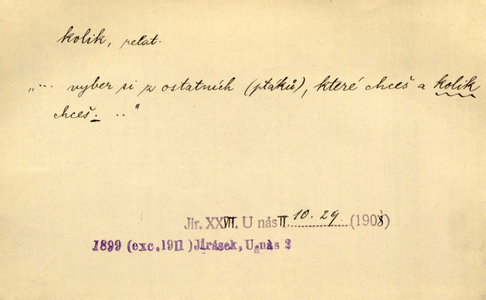 kolik, relat.
"... vyber si z ostatních (ptáků), které chceš a kolik
chceš. .."
Jir. XXVII. U nás II. 10. 29. (1903)
1899 (exc. 1911) Jirásek, U nás 2